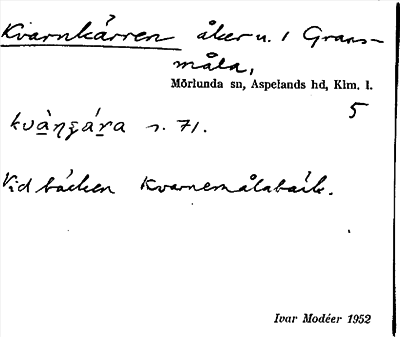 Kvarnkärren åker n. i Grans-
måla,
Mörlunda sn, Aspelands hd, Klm. l.
5
n. 71.
Vid bäcken Kvarnemålabäck.
Ivar Modéer 1952